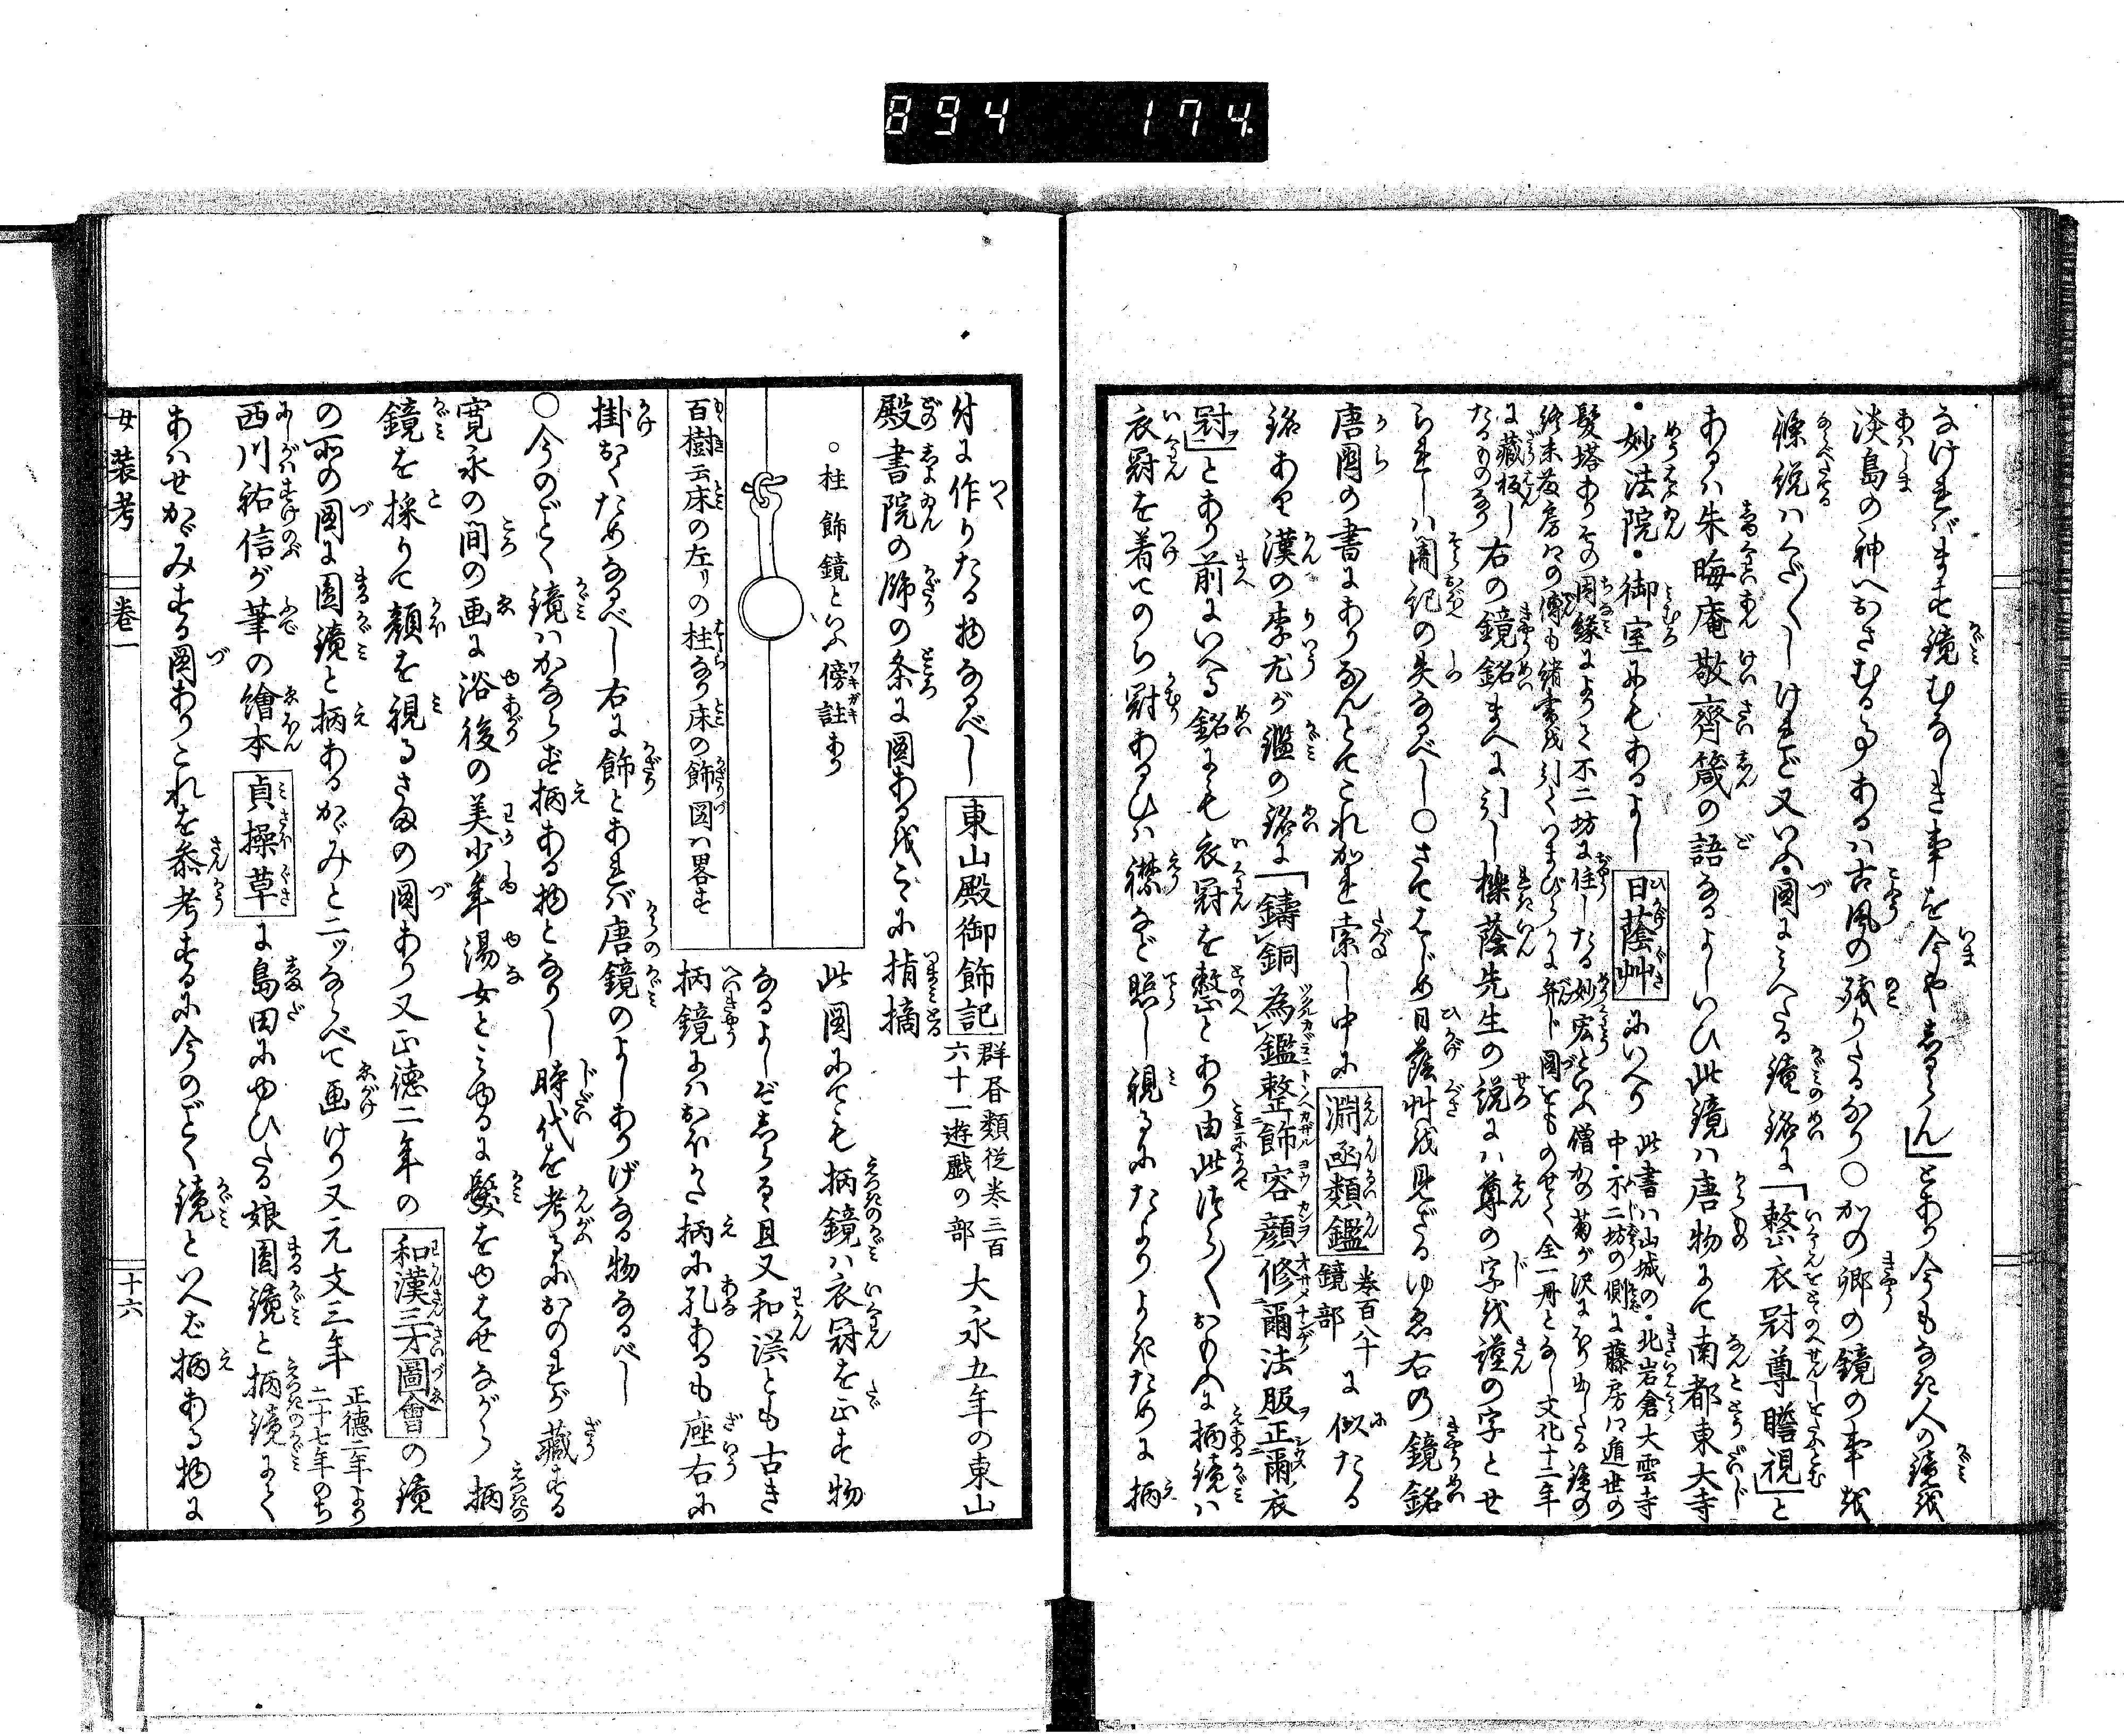 894 174
なければます鏡むなしき事を今やしるらん」とあり今もなき人の鏡を
淡島の神へおさむる事あるハ古風の残りたるなり○かの郷の鏡の事を
條説ハくだ〱しけれど又いふ圖にみへたる鏡銘に「整衣冠尊瞻視」と
あるハ朱晦庵敬齊箴の語なるよしいひ此鏡ハ唐物にて南都東大寺
・妙法院・御室にもあるよし 日蔭艸 にいへり 此書ハ山城の・北岩倉大雲寺
中・不二坊の側に藤房ハ遁世の
髪塔ありその因縁によりて不二坊に住したる妙宏といふ僧かの菊が沢にほり出したる鏡の
始末藤房ハの傳も緒書を引てつまびらかに弁じ圖をものせて全一冊となし文化十二年
に藏板したるものなり
右の鏡銘まへに引し櫟蔭先生の説にハ尊の字を謹の字とせ
られしハ闇記の失なるべし○さてはじめ日蔭艸を見ざるゆゑ右の鏡銘
唐國の書にありなんとてこれかれ索し中に 淵凾類鑑 巻百八十
鏡部 に似たる
銘あり漢の李尤が鑑の銘に「鑄銅為鑑整飾容顔修爾法服正爾衣
冠」とあり前にいへる銘にも衣冠を整とあり由此つら〱おもふに柄鏡ハ
衣冠を着てのち冠あるひハ襟など照し視るにたよりよきために柄
付に作りたる物なるべし 東山殿御飾記 群書類従巻三百
六十一遊戯の部 大永五年の東山
殿書院の飾の条に圖あるをこゝに摘摘
○柱飾鏡といふ傍註あり
百樹云床の左リの柱なり床の飾図ハ畧す
此圖にても柄鏡ハ衣冠を正す物
なるよしぞしらる且又和漢とも古き
柄鏡にハおほかた柄に孔あるも座右に
掛おくためなるべし右に飾とあれバ唐鏡のよしありげなる物なるべし
○今のごとく鏡ハかならず柄ある物となりし時代を考るにおのれが藏する
寛永の間の画に浴後の美少年湯女とみゆるに髪をゆはせながら柄
鏡を採りて顔を視るさまの圖あり又正徳二年の 和漢三才圖會 の鏡
の所の圖に圓鏡と柄あるかゞみと二ッならべて画けり又元文三年 正徳二年より
二十七年のち
西川祐信が筆の繪本 貞操草 に島田にゆひたる娘圓鏡と柄鏡にて
あハせかゞみする圖ありこれを参考するに今のごとく鏡といへば柄ある物に
女装考 巻一 十六